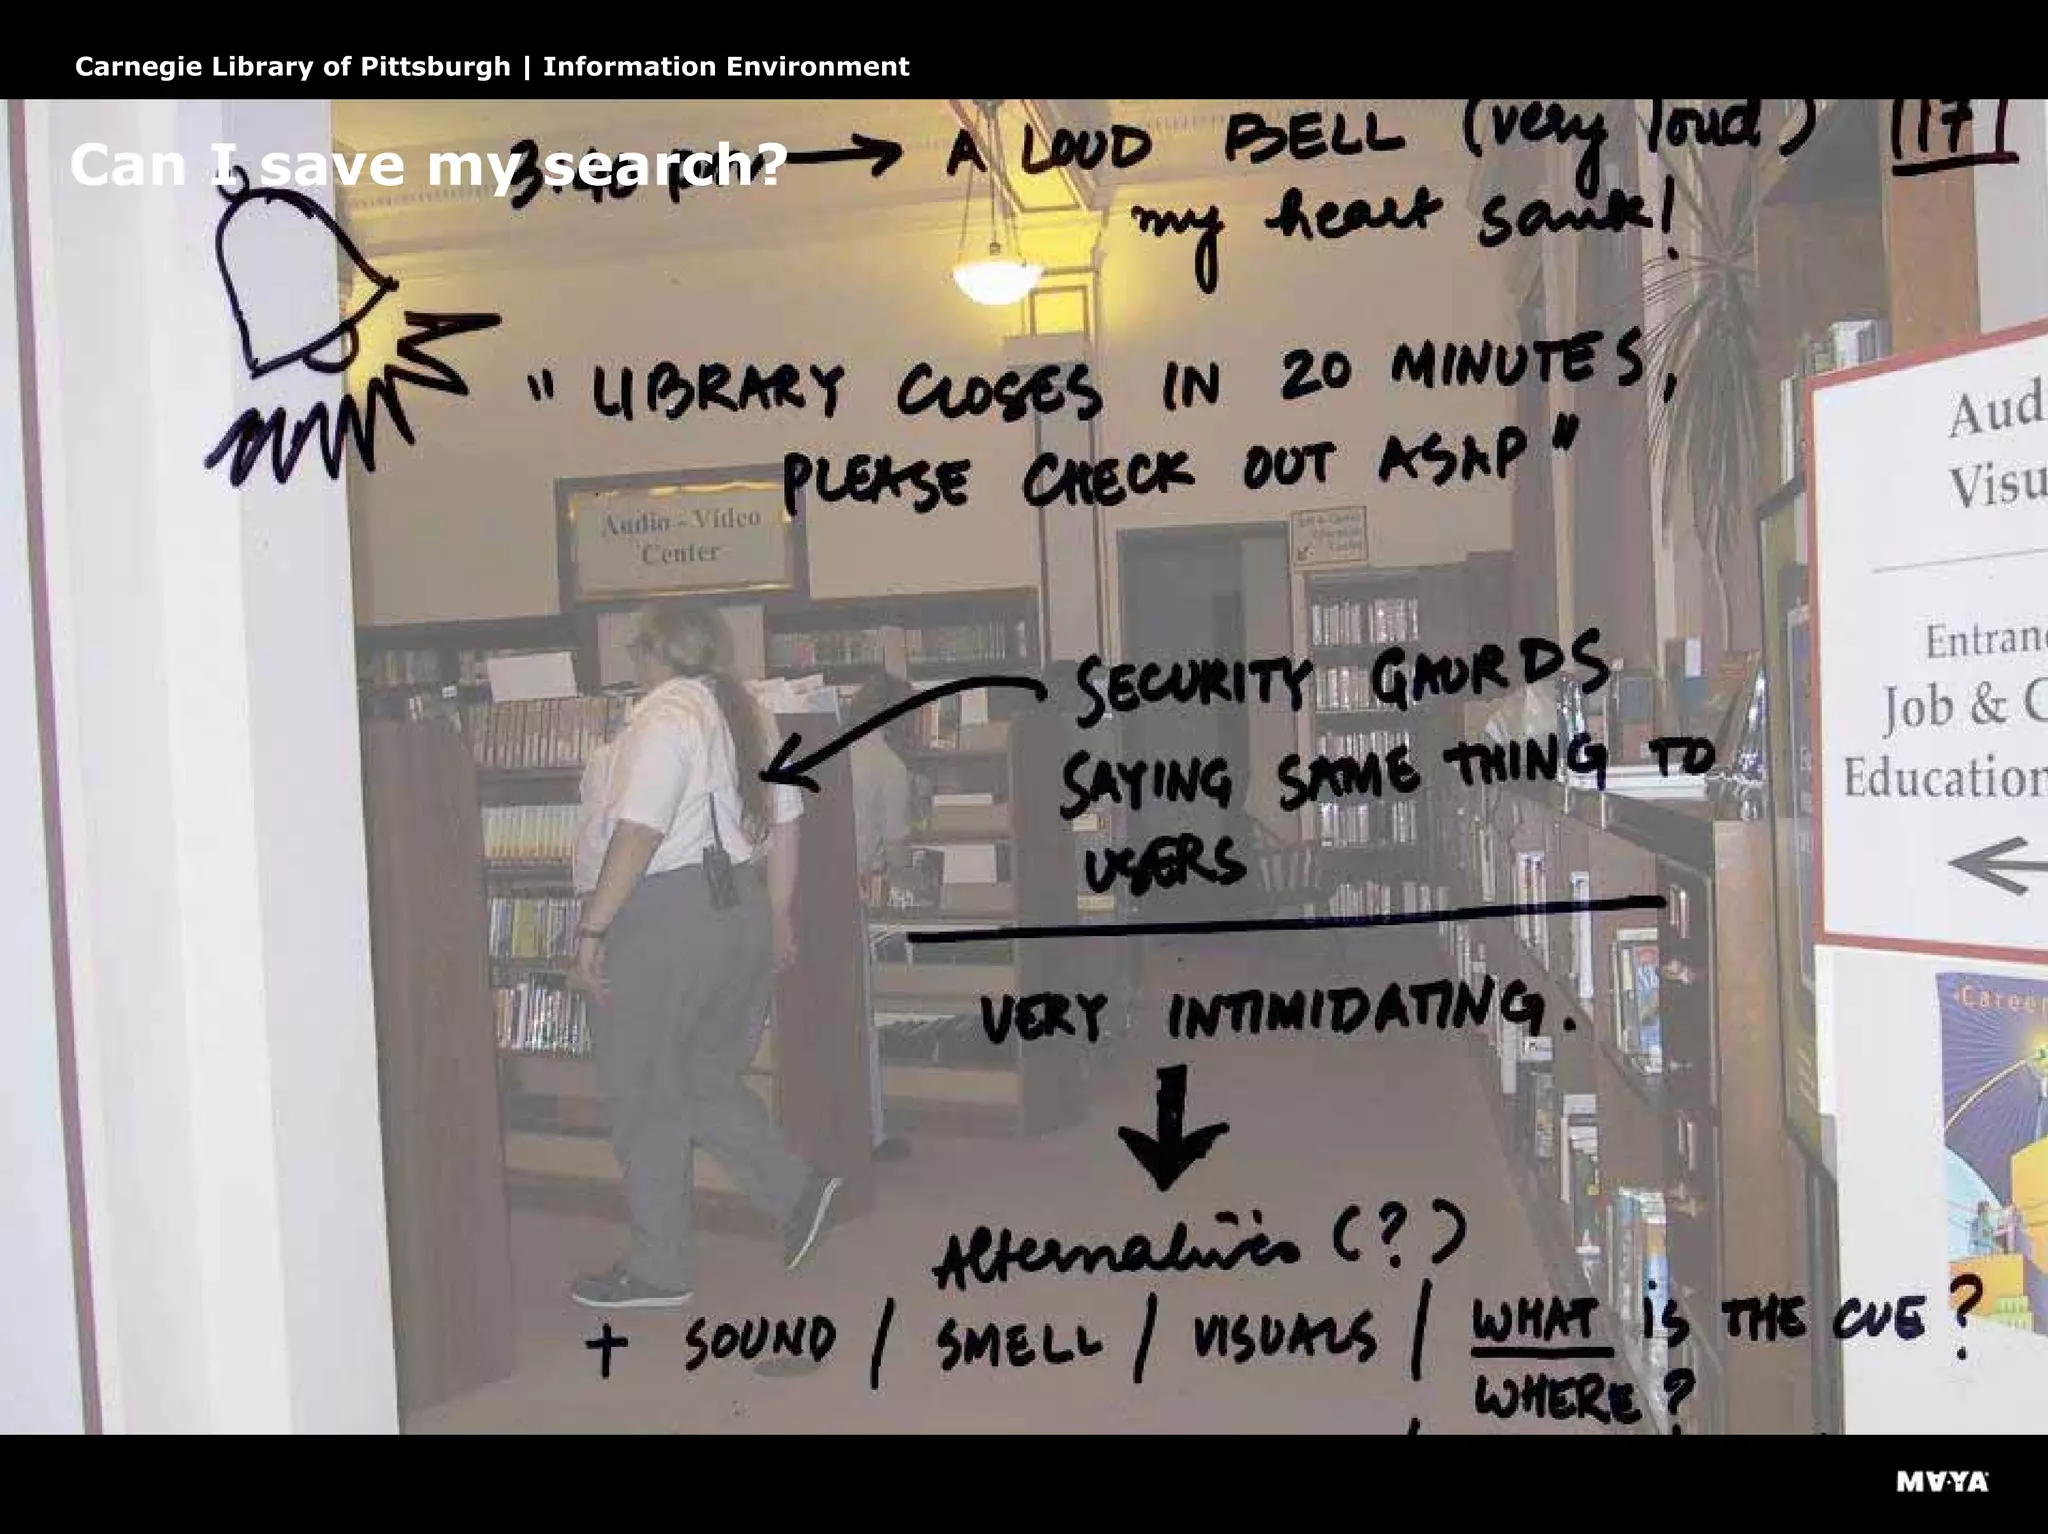 Carnegie Library of Pittsburgh | Information Environment
Can I save my search?
3:40 pm → A LOUD BELL (very loud) 17
my heart sank!
"LIBRARY CLOSES IN 20 MINUTES,
PLEASE CHECK OUT ASAP"
Audio - Video
Center
Aud
Visu
Entran
Job & C
Education
←
Career
SECURITY GAURDS
SAYING SAME THING TO
USERS
VERY INTIMIDATING.
Alternatives (?)
+ SOUND / SMELL / VISUALS / WHAT is THE CUE?
WHERE?
MAYA